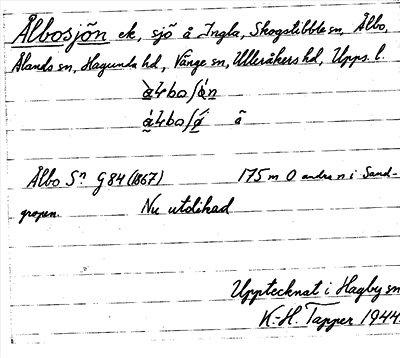 Ålbosjön ek, sjö å Ingla, Skogstibble sn, Ålbo,
Ålands sn, Hagunda hd, Vänge sn, Ulleråkers hd, Upps. l.
Ålbo Sn G84 (1867) 175 m O andra n i Sand-
gropen. Nu utdikad
Upptecknat i Hagby sn
K.-H. Tapper 1944.